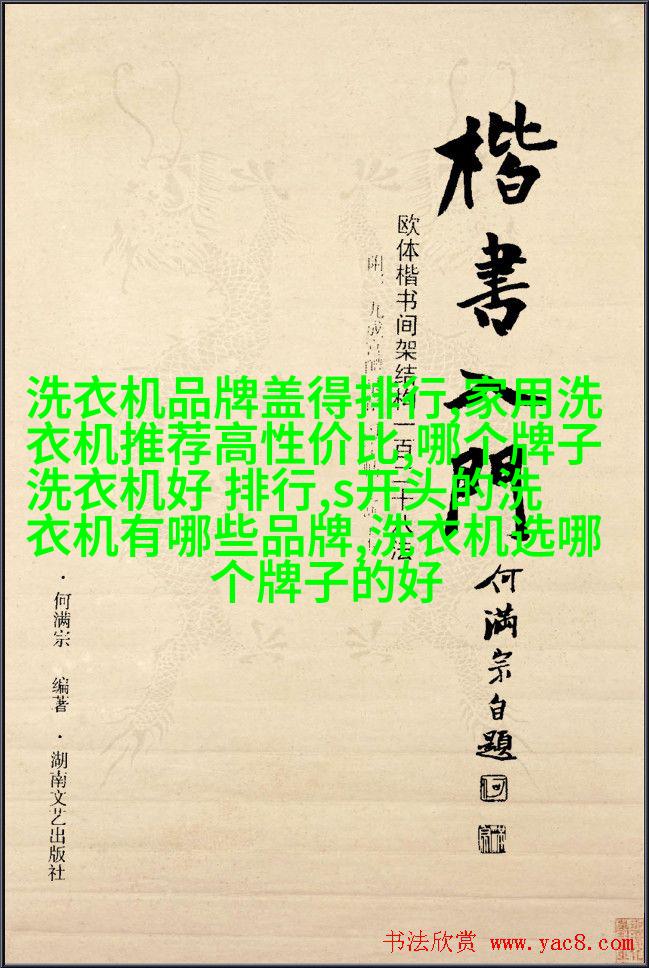 楷書入門
欧体楷书间架结构一百二十八法
何满宗自题
洗衣机品牌盖得排行,家用洗
衣机推荐高性价比,哪个牌子
洗衣机好 排行,s开头的洗
衣机有哪些品牌,洗衣机选哪
个牌子的好
·何满宗 编著·湖南文艺出版社
书法欣赏 www.yac8.com